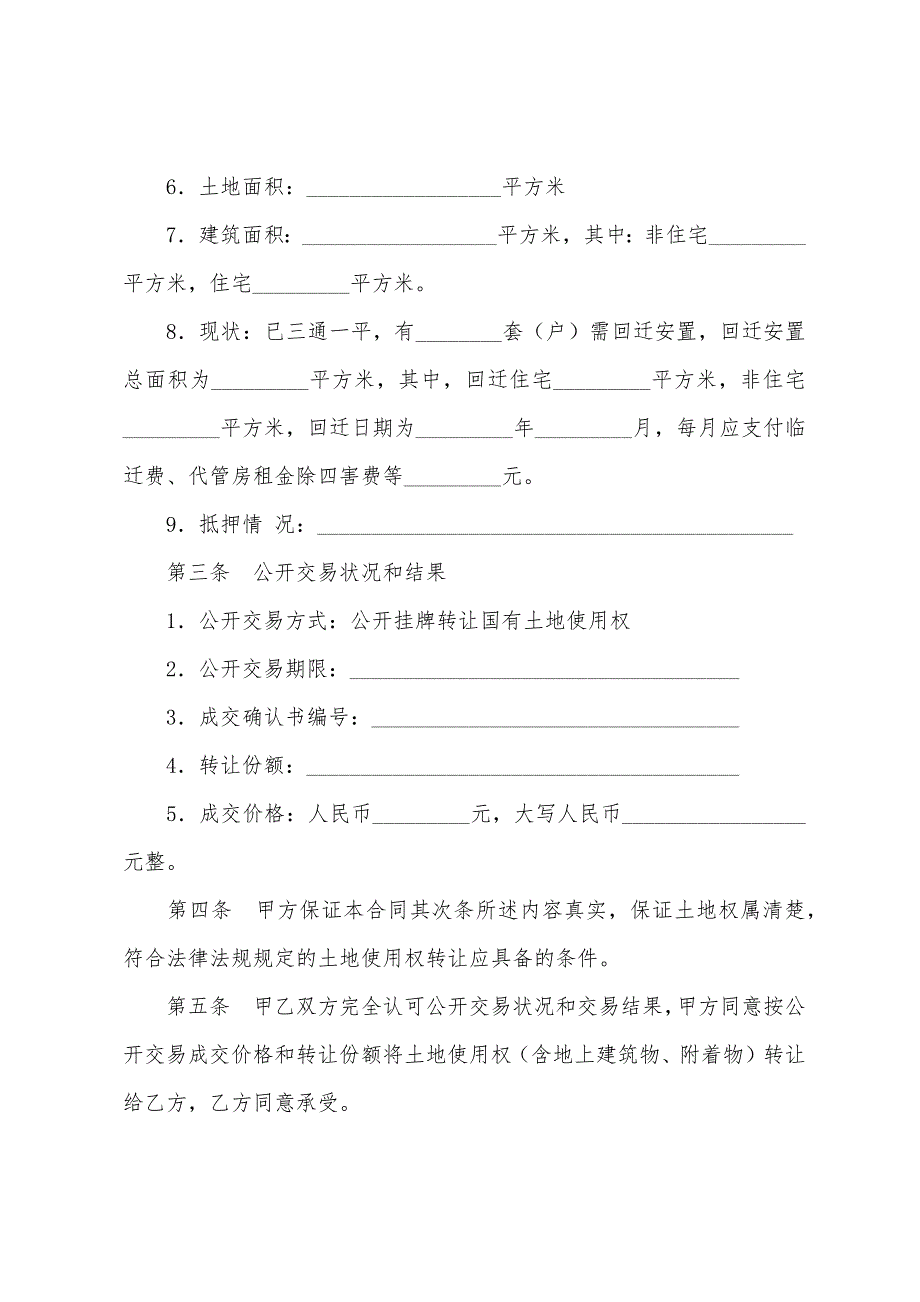 6. 土地面积：__________________平方米
7. 建筑面积：__________________平方米，其中：非住宅_________
平方米，住宅_________平方米。
8. 现状：已三通一平，有________套（户）需回迁安置，回迁安置
总面积为_________平方米，其中，回迁住宅_________平方米，非住宅
_________平方米，回迁日期为_________年_________月，每月应支付临
迁费、代管房租金除四害费等_________元。
9. 抵押情 况：____________________________________________
第三条　公开交易状况和结果
1. 公开交易方式：公开挂牌转让国有土地使用权
2. 公开交易期限：____________________________________
3. 成交确认书编号：__________________________________
4. 转让份额：________________________________________
5. 成交价格：人民币_________元，大写人民币_________________
元整。
第四条　甲方保证本合同其次条所述内容真实，保证土地权属清楚，
符合法律法规规定的土地使用权转让应具备的条件。
第五条　甲乙双方完全认可公开交易状况和交易结果，甲方同意按公
开交易成交价格和转让份额将土地使用权（含地上建筑物、附着物）转让
给乙方，乙方同意承受。